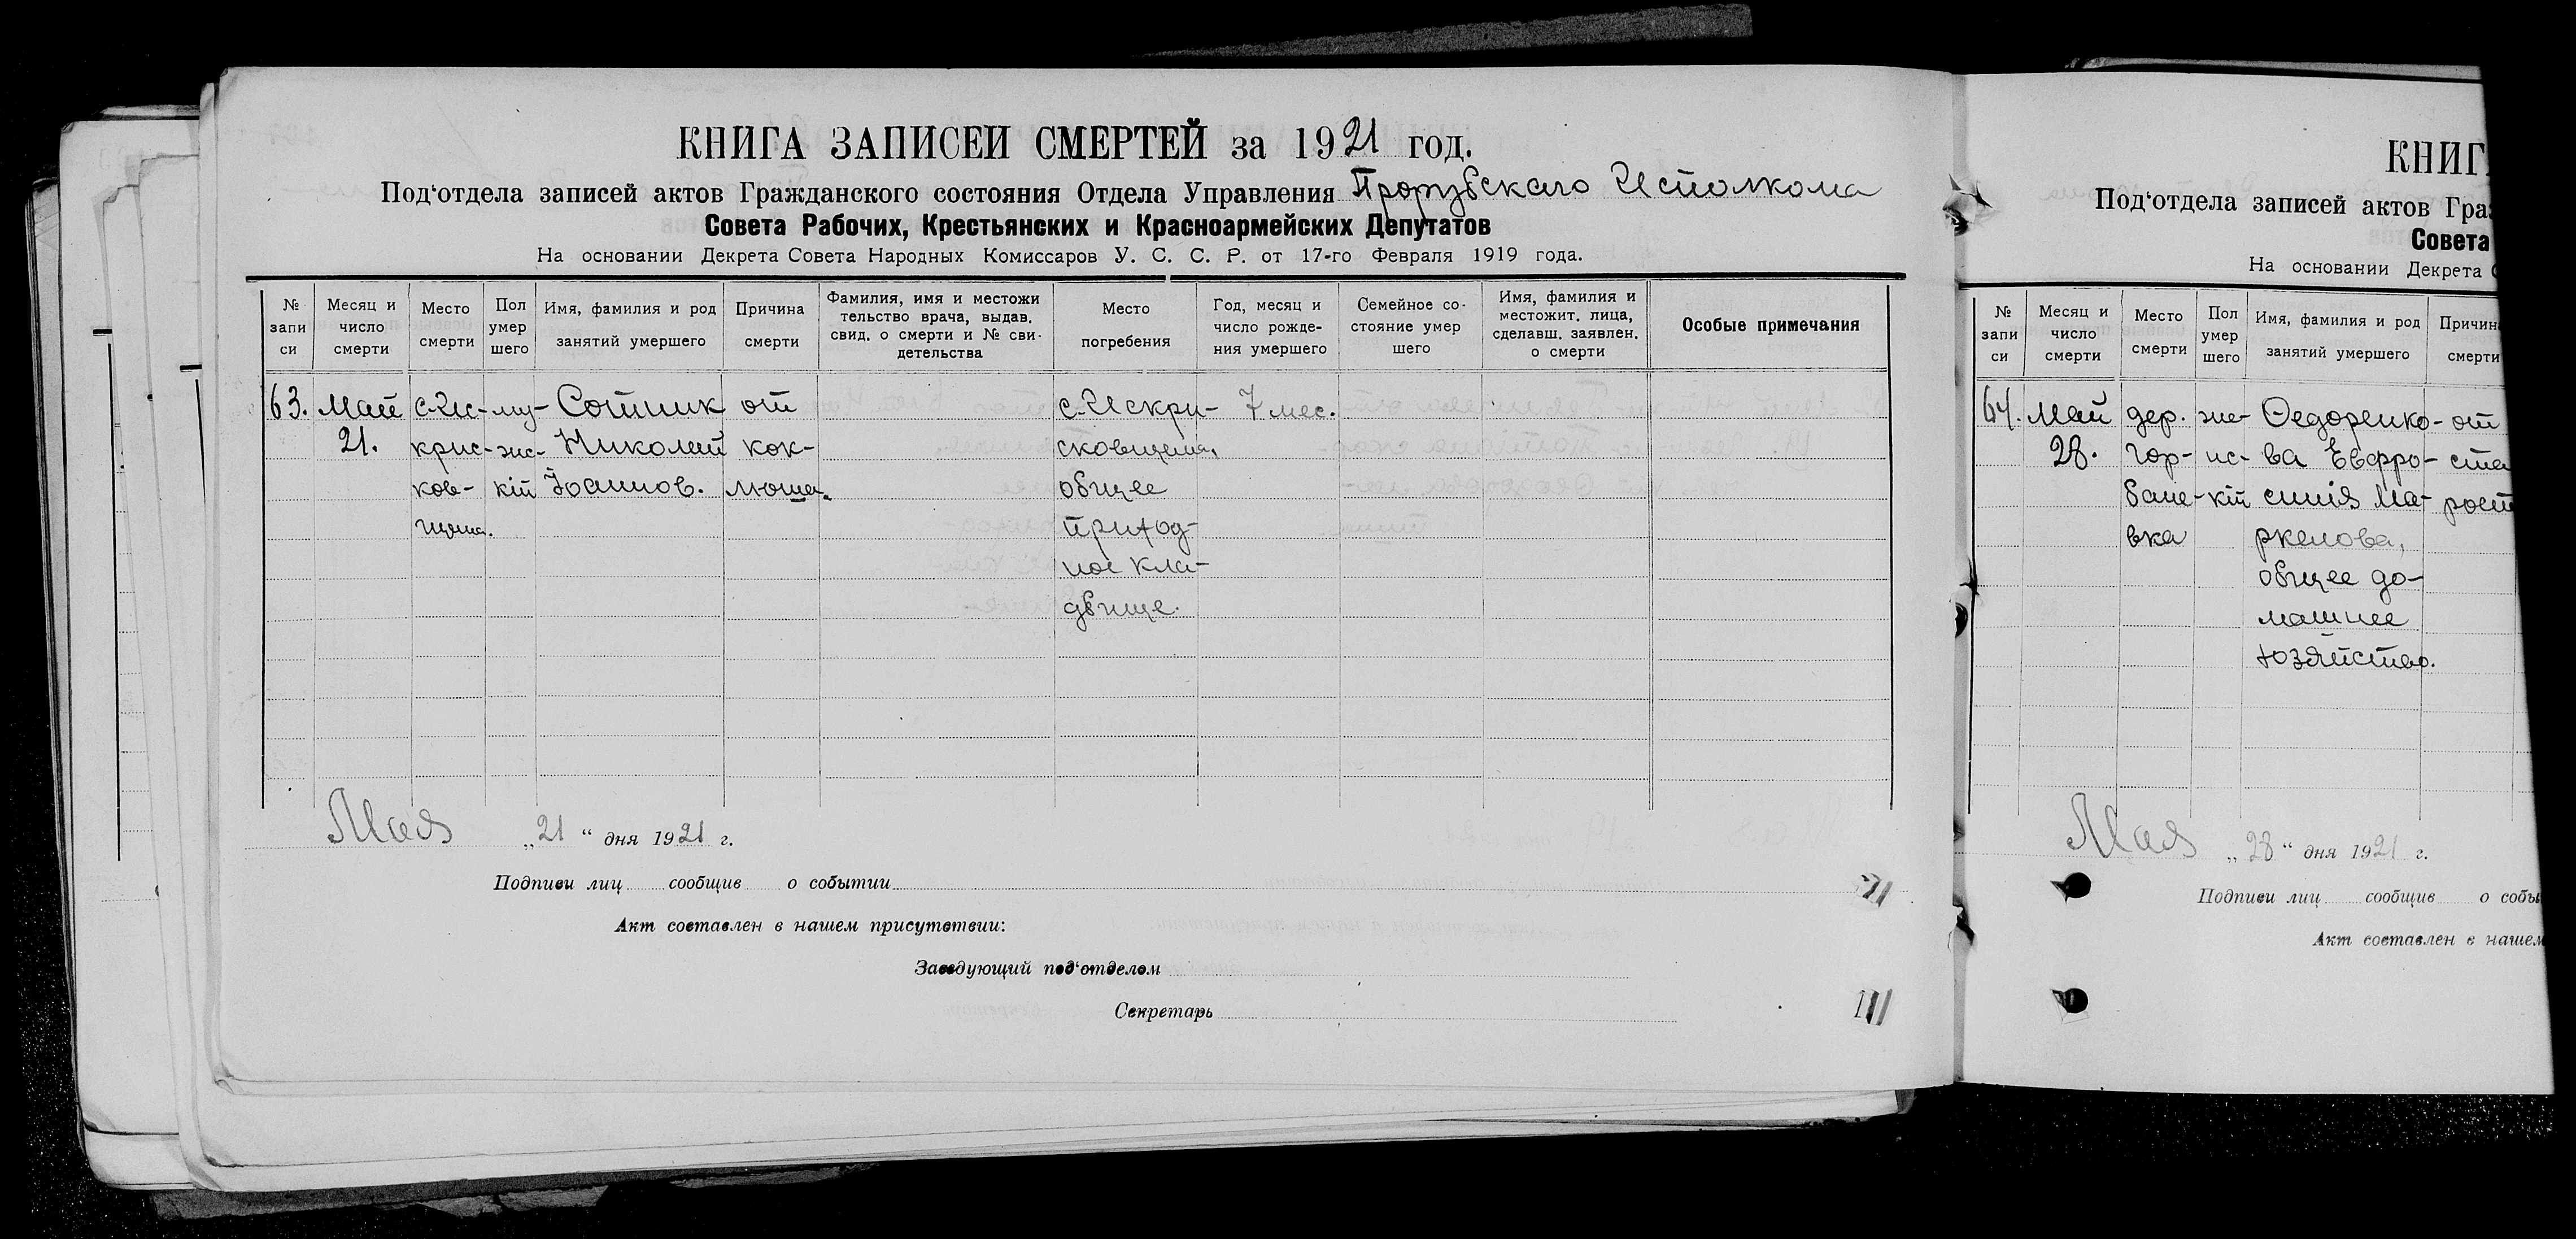 КНИГА ЗАПИСЕЙ СМЕРТЕЙ за 1921 год.
Под‘отдела записей актов Гражданского состояния Отдела Управления Прорубскаго Исполкома
Совета Рабочих, Крестьянских и Красноармейских Депутатов
На основании Декрета Совета Народных Комиссаров У. С. С. Р. от 17-го Февраля 1919 года.
№ запи си
Месяц и число смерти
Место смерти
Пол умер шего
Имя, фамилия и род занятий умершего
Причина смерти
Фамилия, имя и местожи тельство врача, выдав. свид. о смерти и № сви- детельства
Место погребения
Год, месяц и число рожде- ния умершего
Семейное со- стояние умер шего
Имя, фамилия и местожит. лица, сделавш. заявлен. о смерти
Особые примечания
63. Май с-Ис- му- Сотник от с-Искри- 7 мес.
21. крис- жс- Николай кок- сковщина,
ков- кій Іоаннов. люша. общее
щина. приход-
ное кла-
дбище.
Мая „21“ дня 1921 г.
Подписи лиц сообщив о событии
Акт составлен в нашем присутствии:
Заведующий под‘отделом
Секретарь
111
КНИГ
Под‘отдела записей актов Гра
Совета
На основании Декрета
№ запи си
Месяц и число смерти
Место смерти
Пол умер шего
Имя, фамилия и род занятий умершего
Причин смерти
64. Май дер. же- Ѳедоренко- от
28. Гор- нс- ва Евфро- ста
бане- кій синія Ма- рост
вка ркелова,
общее до-
машнее
хозяйство.
Мая „28“ дня 1921 г.
Подписи лиц сообщив о собы
Акт составлен в нашем